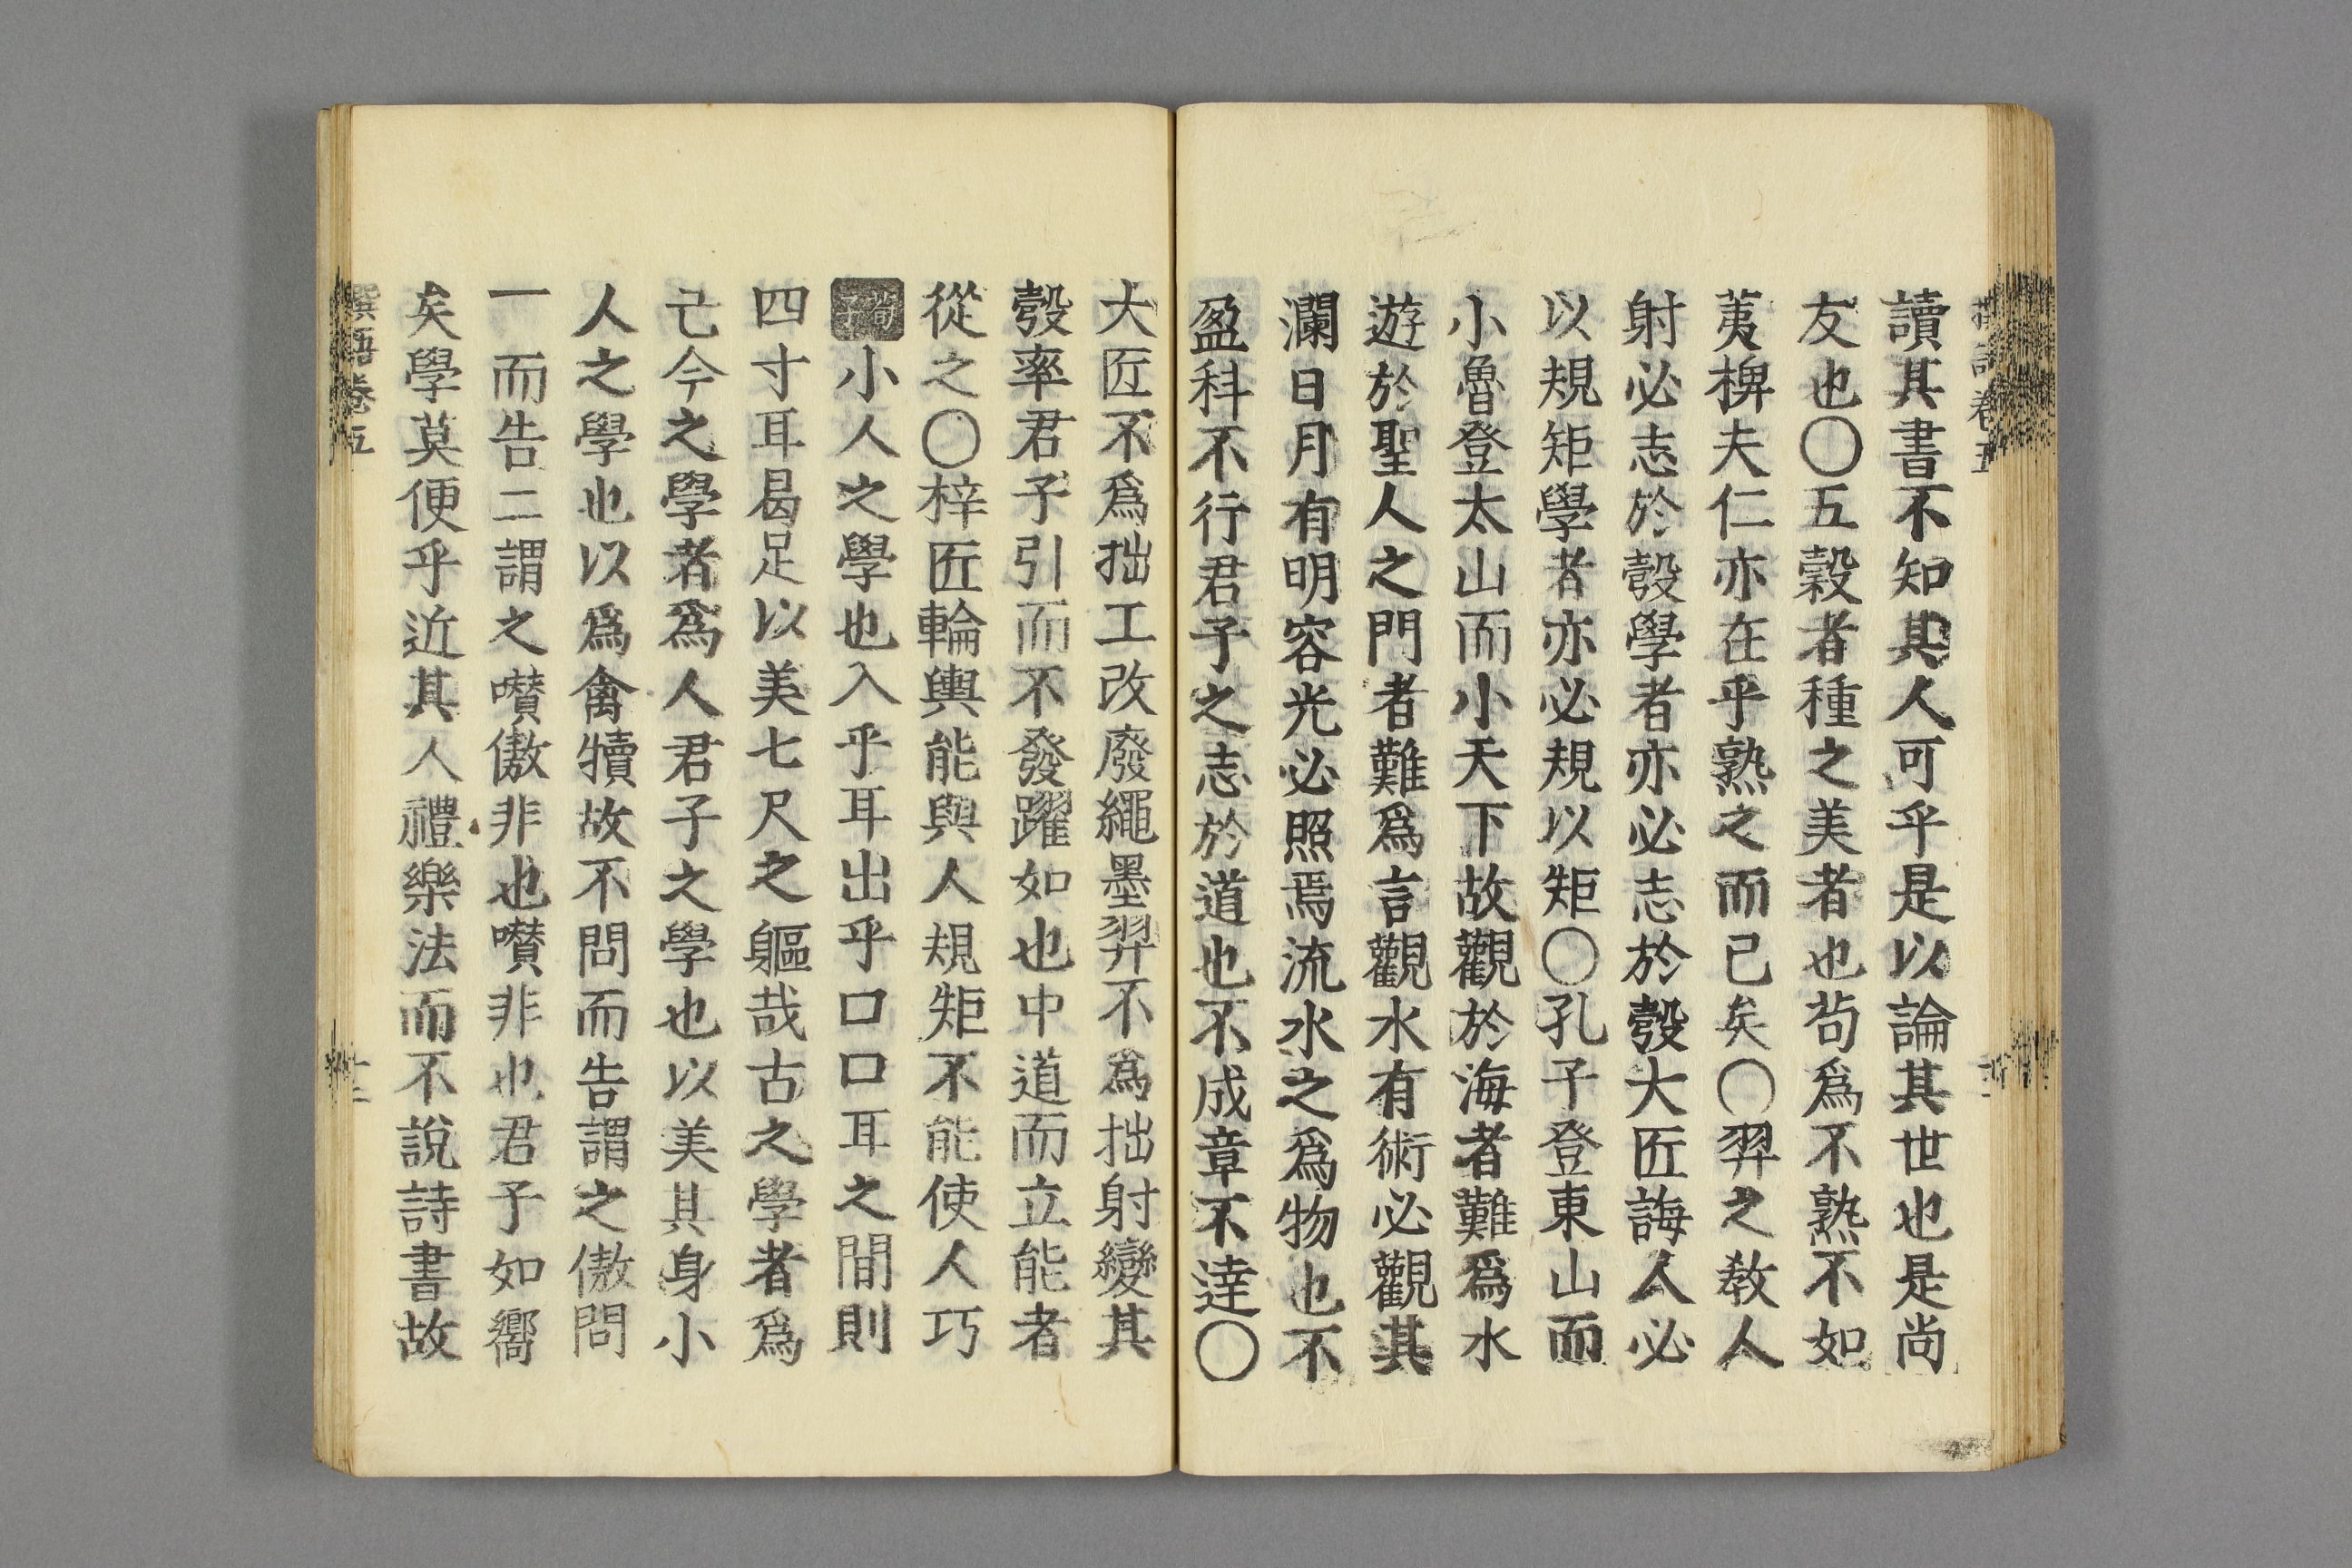 讀其書不知其人可乎是以論其世也是尚
友也〇五穀者種之美者也苟爲不熟不如
荑稗夫仁亦在乎熟之而已矣〇羿之教人
射必志於彀學者亦必志於彀大匠誨人必
以規矩學者亦必規以矩〇孔子登東山而
小魯登太山而小天下故觀於海者難爲水
遊於聖人之門者難爲言觀水有術必觀其
瀾日月有明容光必照焉流水之爲物也不
盈科不行君子之志於道也不成章不達〇
大匠不爲拙工改廢繩墨羿不爲拙射變其
彀率君子引而不發躍如也中道而立能者
從之〇梓匠輪輿能與人規矩不能使人巧
荀子小人之學也入乎耳出乎口口耳之間則
四寸耳曷足以美七尺之軀哉古之學者爲
己今之學者爲人君子之學也以美其身小
人之學也以爲禽犢故不問而告謂之傲問
一而告二謂之囋傲非也囋非也君子如嚮
矣學莫便乎近其人禮樂法而不說詩書故
撰語卷五